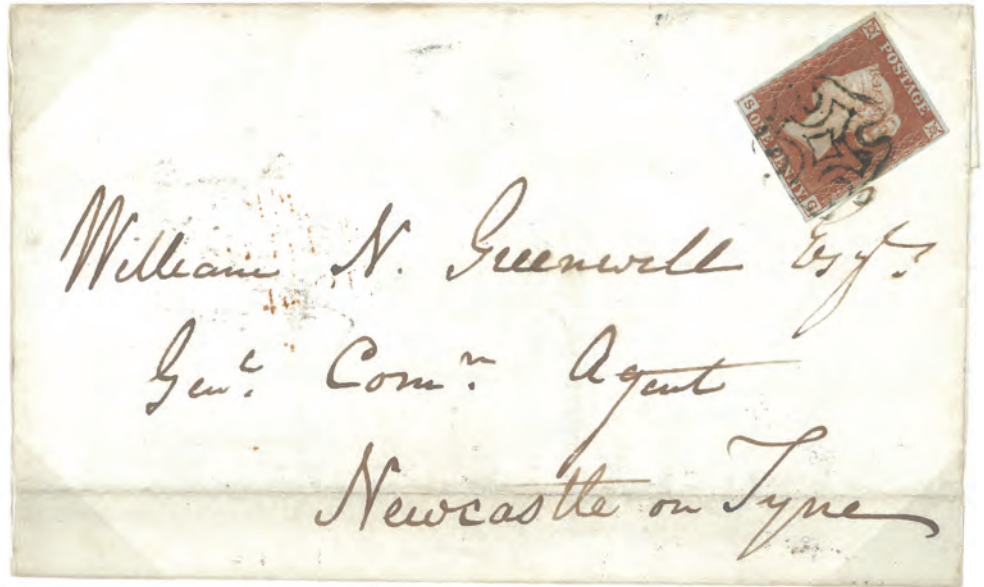 POSTAGE
S ONE PENNY G
William N. Greenwell Esqr.
Genl. Comn. Agent
Newcastle on Tyne